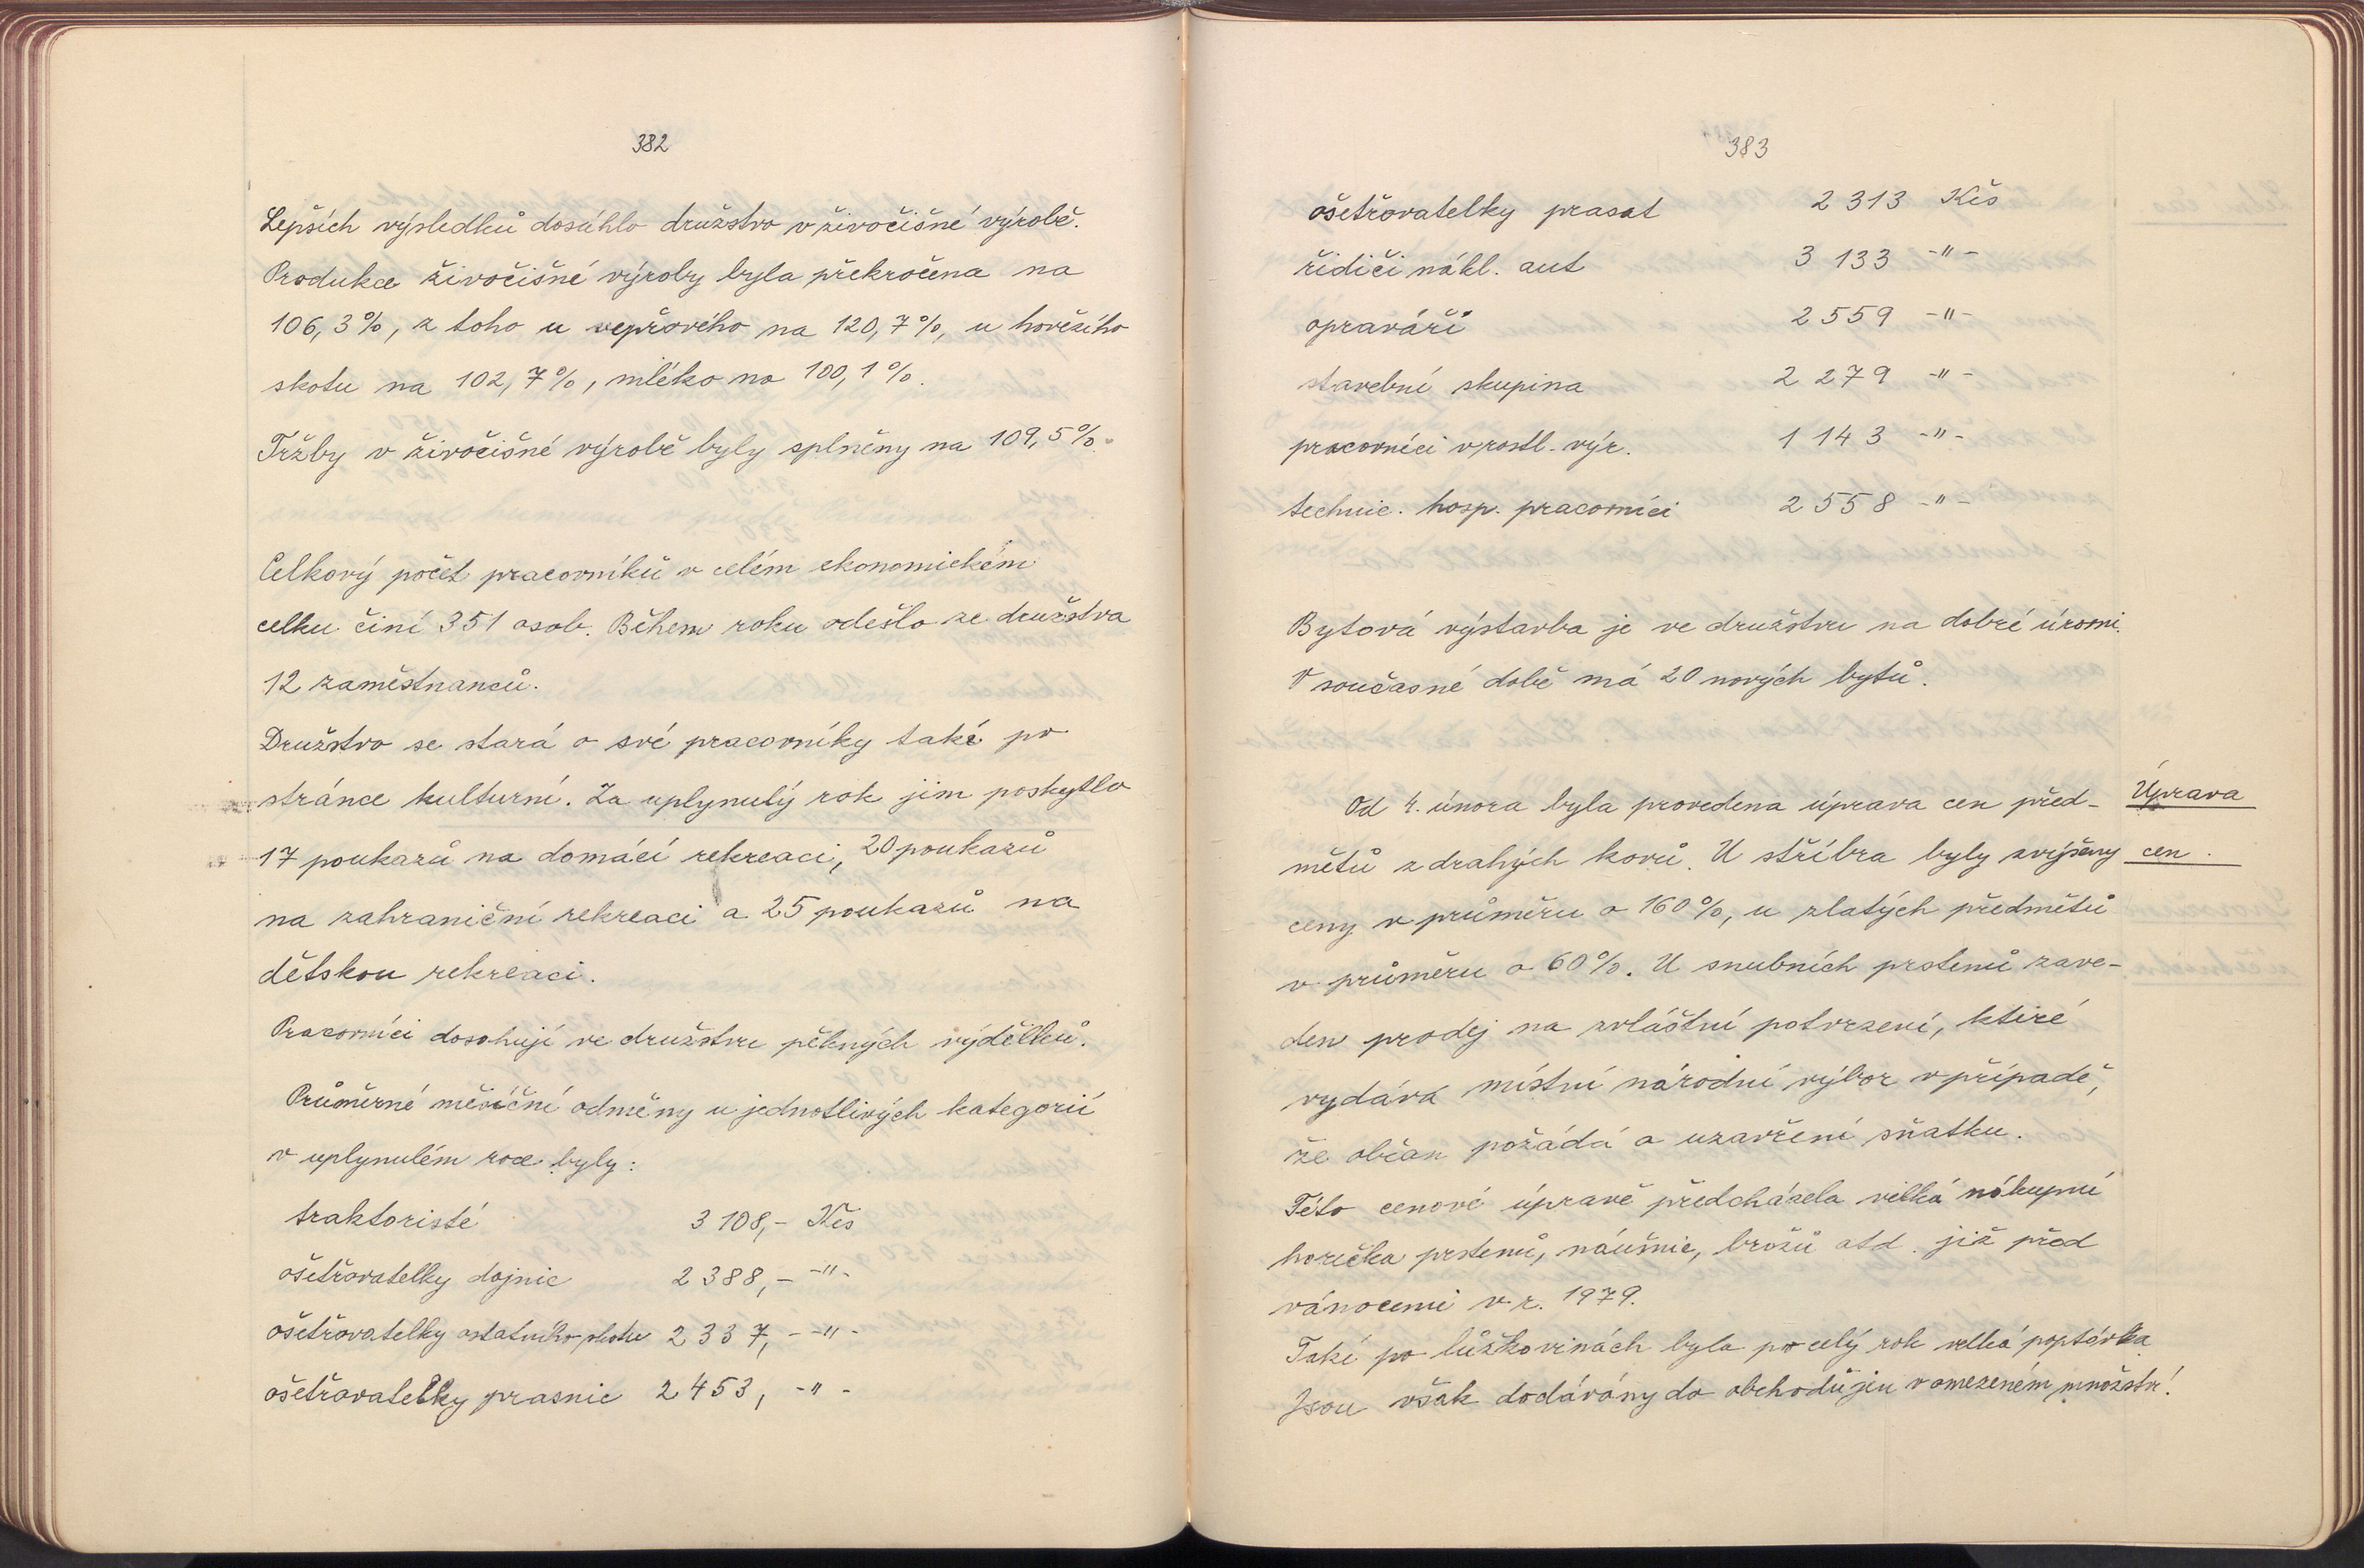 382
Lepších výsledků dosáhlo družstvo v živočišné výrobě.
Produkce živočišné výroby byla překročena na
106,3%, z toho u vepřového na 120,7%, u hovězího
skotu na 102,7%, mléko na 100,1%.
Tržby v živočišné výrobě byly splněny na 109,5%.
Celkový počet pracovníků v celém ekonomickém
celku činí 351 osob. Během roku odešlo ze družstva
12 zaměstnanců.
Družstvo se stará o své pracovníky také po
stránce kulturní. Za uplynulý rok jim poskytlo
17 poukazů na domácí rekreaci, 20 poukazů
na zahraniční rekreaci a 25 poukazů na
dětskou rekreaci.
Pracovníci dosahují ve družstvu pěkných výdělků.
Průměrné měsíční odměny u jednotlivých kategorií
v uplynulém roce byly:
traktoristé 3 108,- Kčs
ošetřovatelky dojnic 2 388,- -"-
ošetřovatelky ostatního skotu 2 337,- -"-
ošetřovatelky prasnic 2 453, -"-
383
ošetřovatelky prasat 2 313 Kčs
řidiči nákl. aut 3 133 -"-
opraváři 2 559 -"-
stavební skupina 2 279 -"-
pracovníci v rostl. výr. 1 143 -"-
technic. hosp. pracovníci 2 558 -"-
Bytová výstavba je ve družstvu na dobré úrovni.
V současné době má 20 nových bytů.
Od 4. února byla provedena úprava cen před- Úprava
mětů z drahých kovů. U stříbra byly zvýšeny cen.
ceny v průměru o 160%, u zlatých předmětů
v průměru o 60%. U snubních prstenů zave-
den prodej na zvláštní potvrzení, které
vydává místní národní výbor v případě,
že občan požádá o uzavření sňatku.
Této cenové úpravě předcházela velká nákupní
horečka prstenů, náušnic, brožů atd. již před
vánocemi v r. 1979.
Také po lůžkovinách byla po celý rok velká poptávka
Jsou však dodávány do obchodů jen v omezeném množství.